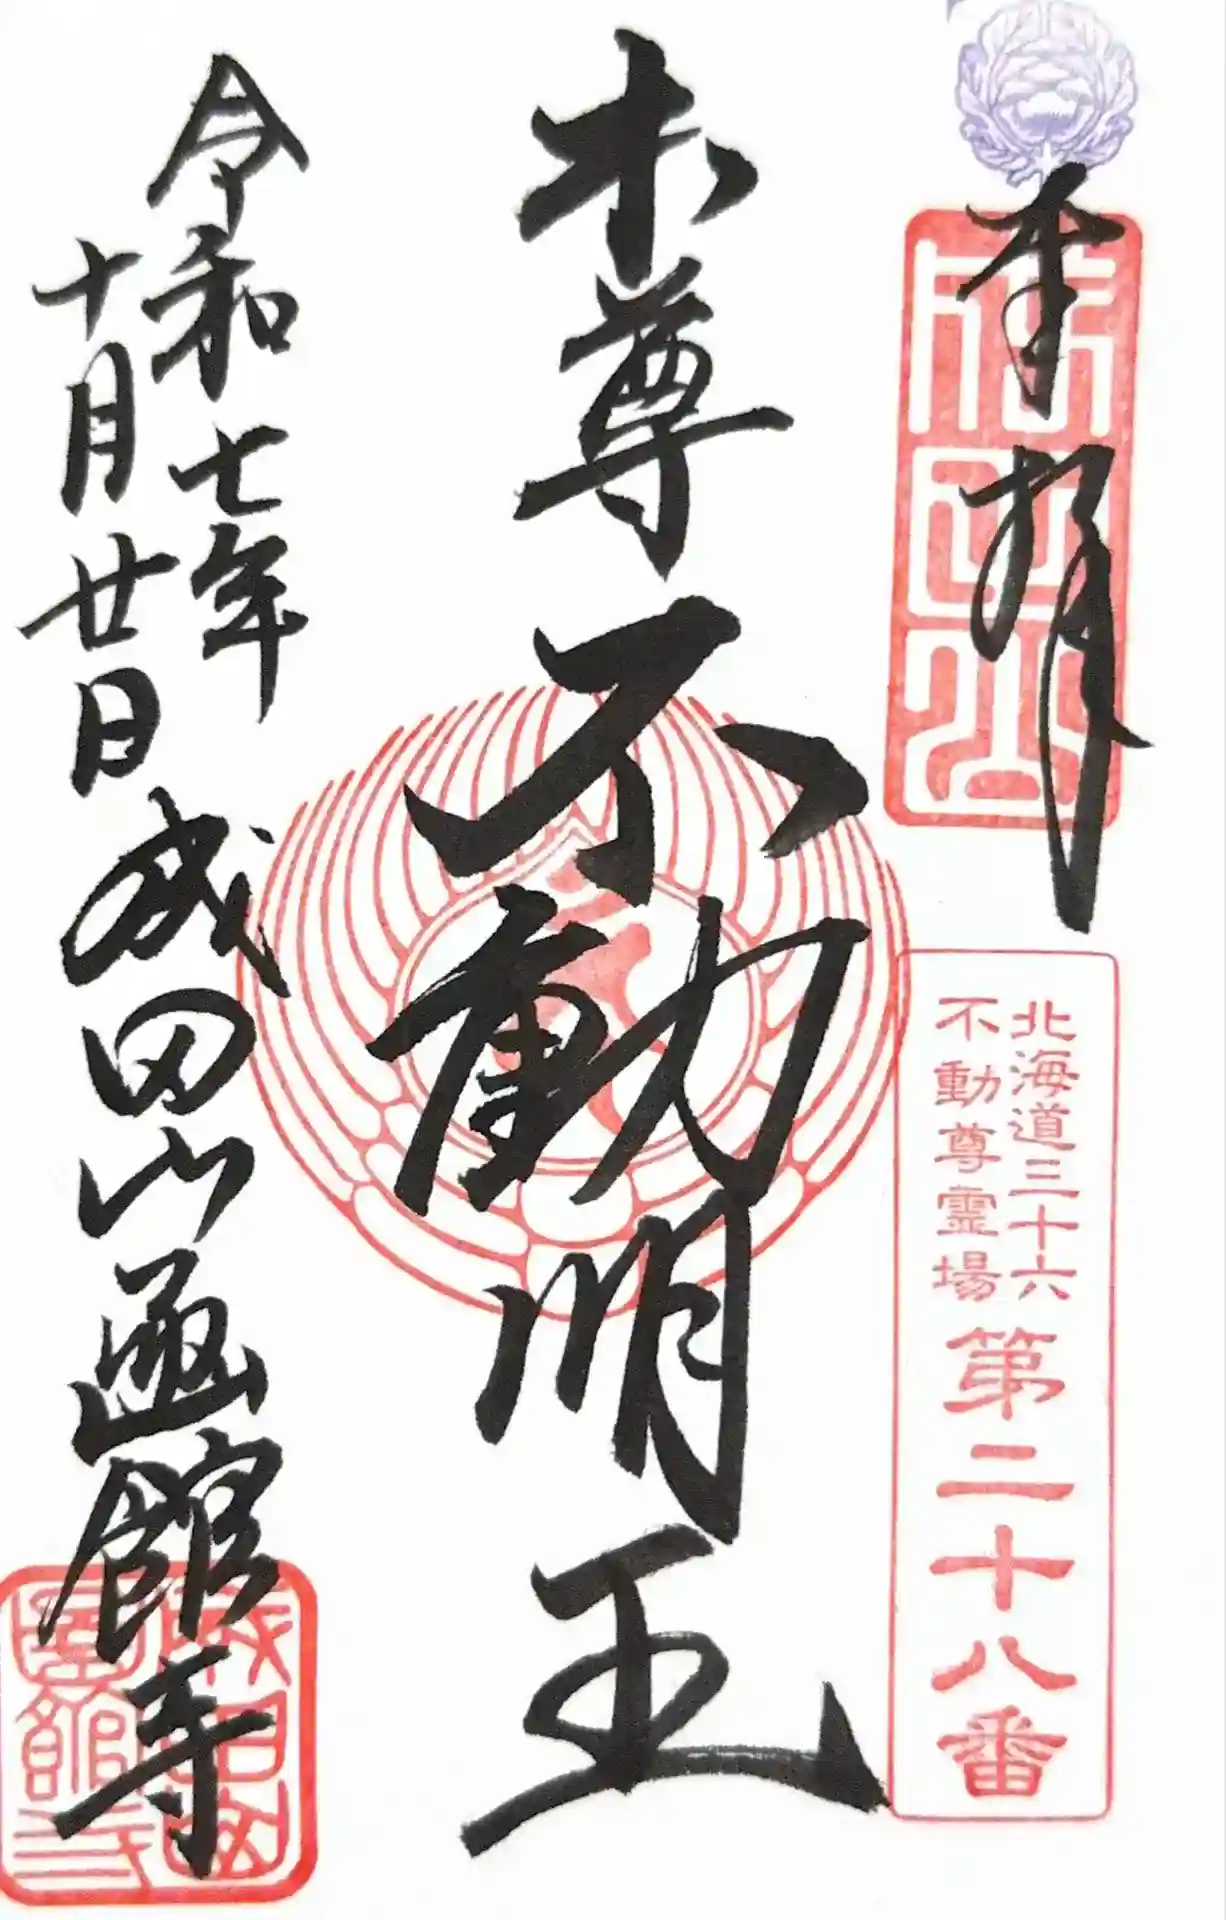 奉拝
成田山
北海道三十六
不動尊霊場
第二十八番
本尊
不動明王
令和七年
十月廿日
成田山函館寺